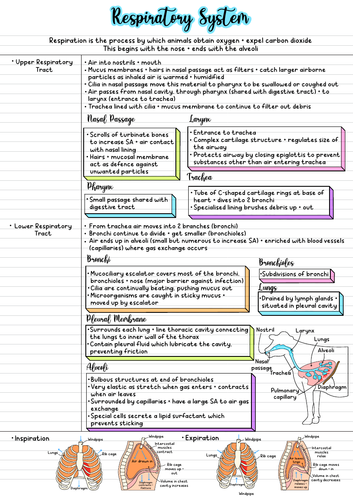 Respiratory System
Respiration is the process by which animals obtain oxygen + expel carbon dioxide
This begins with the nose + ends with the alveoli
• Upper Respiratory
Tract
• Air into nostrils + mouth
• Mucus membranes + hairs in nasal passage act as filters + catch larger airborne
particles as inhaled air is warmed + humidified
• Cilia in nasal passage move this material to pharynx to be swallowed or coughed out
• Air passes from nasal cavity, through pharynx (shared with digestive tract) + to
larynx (entrance to trachea)
• Trachea lined with cilia + mucus membrane to continue to filter out debris
Nasal Passage
• Scrolls of turbinate bones
to increase SA + air contact
with nasal lining
• Hairs + mucosal membrane
act as defence against
unwanted particles
Larynx
• Entrance to trachea
• Complex cartilage structure + regulates size of
the airway
• Protects airway by closing epiglottis to prevent
substances other than air entering trachea
Pharynx
• Small passage shared with
digestive tract
Trachea
• Tube of C-shaped cartilage rings at base of
heart + dives into 2 bronchi
• Specialised lining brushes debris up + out
• Lower Respiratory
Tract
• From trachea air moves into 2 branches (bronchi)
• Bronchi continue to divide + get smaller (bronchioles)
• Air ends up in alveoli (small but numerous to increase SA) + enriched with blood vessels
(capillaries) where gas exchange occurs
Bronchi
• Mucociliary escalator covers most of the bronchi,
bronchioles + nose (major barrier against infection)
• Cilia are continually beating, pushing mucus out
• Microorganisms are caught in sticky mucus +
moved up by escalator
Bronchioles
• Subdivisions of bronchi
Lungs
• Drained by lymph glands +
situated in pleural cavity
Pleural Membrane
• Surrounds each lung + line thoracic cavity connecting
the lungs to inner wall of the thorax
• Contain pleural fluid which lubricate the cavity,
preventing friction
Alveoli
• Bulbous structures at end of bronchioles
• Very elastic to stretch when gas enters + contracts
when air leaves
• Surrounded by capillaries + have a large SA to air gas
exchange
• Special cells secrete a lipid surfactant which
prevents sticking
Nostril
Larynx
Lungs
Alveoli
Nasal
passage
Trachea
Diaphragm
Pulmonary
capillary
• Inspiration
Windpipe
Lungs
Rib cage
moves up +
out
Windpipe
Intercostal
muscles
contract
Volume in chest
cavity increases
• Expiration
Windpipe
Lungs
Rib cage
moves
down + in
Windpipe
Intercostal
muscles
relax
Volume in chest
cavity decreases